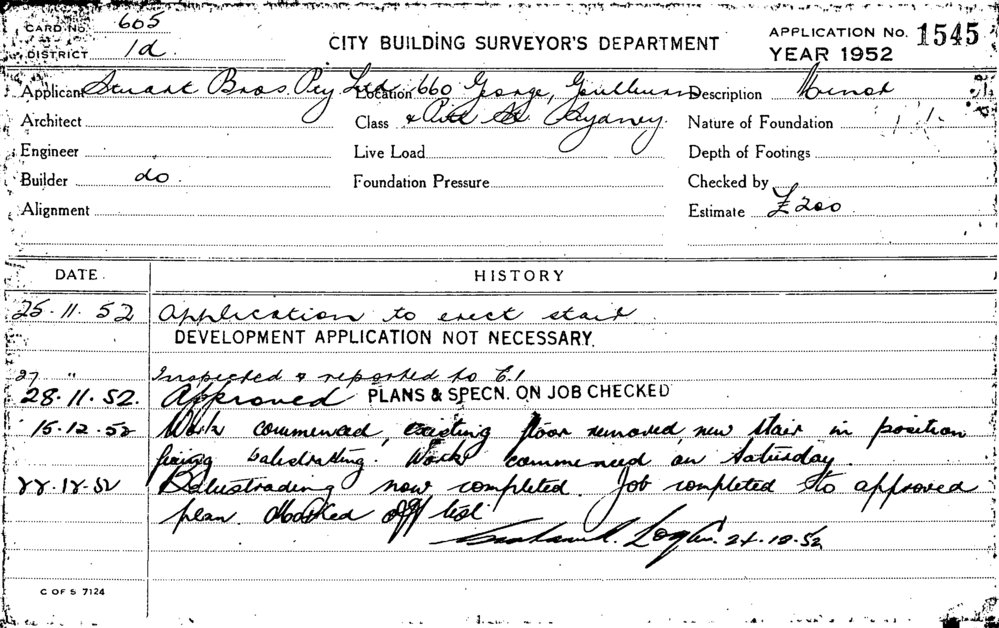 CARD No. 605
DISTRICT 1d.
CITY BUILDING SURVEYOR'S DEPARTMENT
APPLICATION No. 1545
YEAR 1952
Applicant Stuart Bros. Pty Ltd Location 660 George, Goulburn Description Minor
Architect Class & Pitt St Sydney. Nature of Foundation
Engineer Live Load Depth of Footings
Builder do. Foundation Pressure Checked by
Alignment Estimate £200
DATE. HISTORY
25.11.52 Application to erect stair.
DEVELOPMENT APPLICATION NOT NECESSARY.
27 " Inspected & reported to C.I.
28.11.52. Approved PLANS & SPECN. ON JOB CHECKED
15.12.52 Work commenced, existing floor removed, new stair in position
fixing balustrading. Work commenced on Saturday
22.12.52 Balustrading now completed. Job completed to approved
plan. Marked off list.
Logan. 22.12.52
C OF S 7124